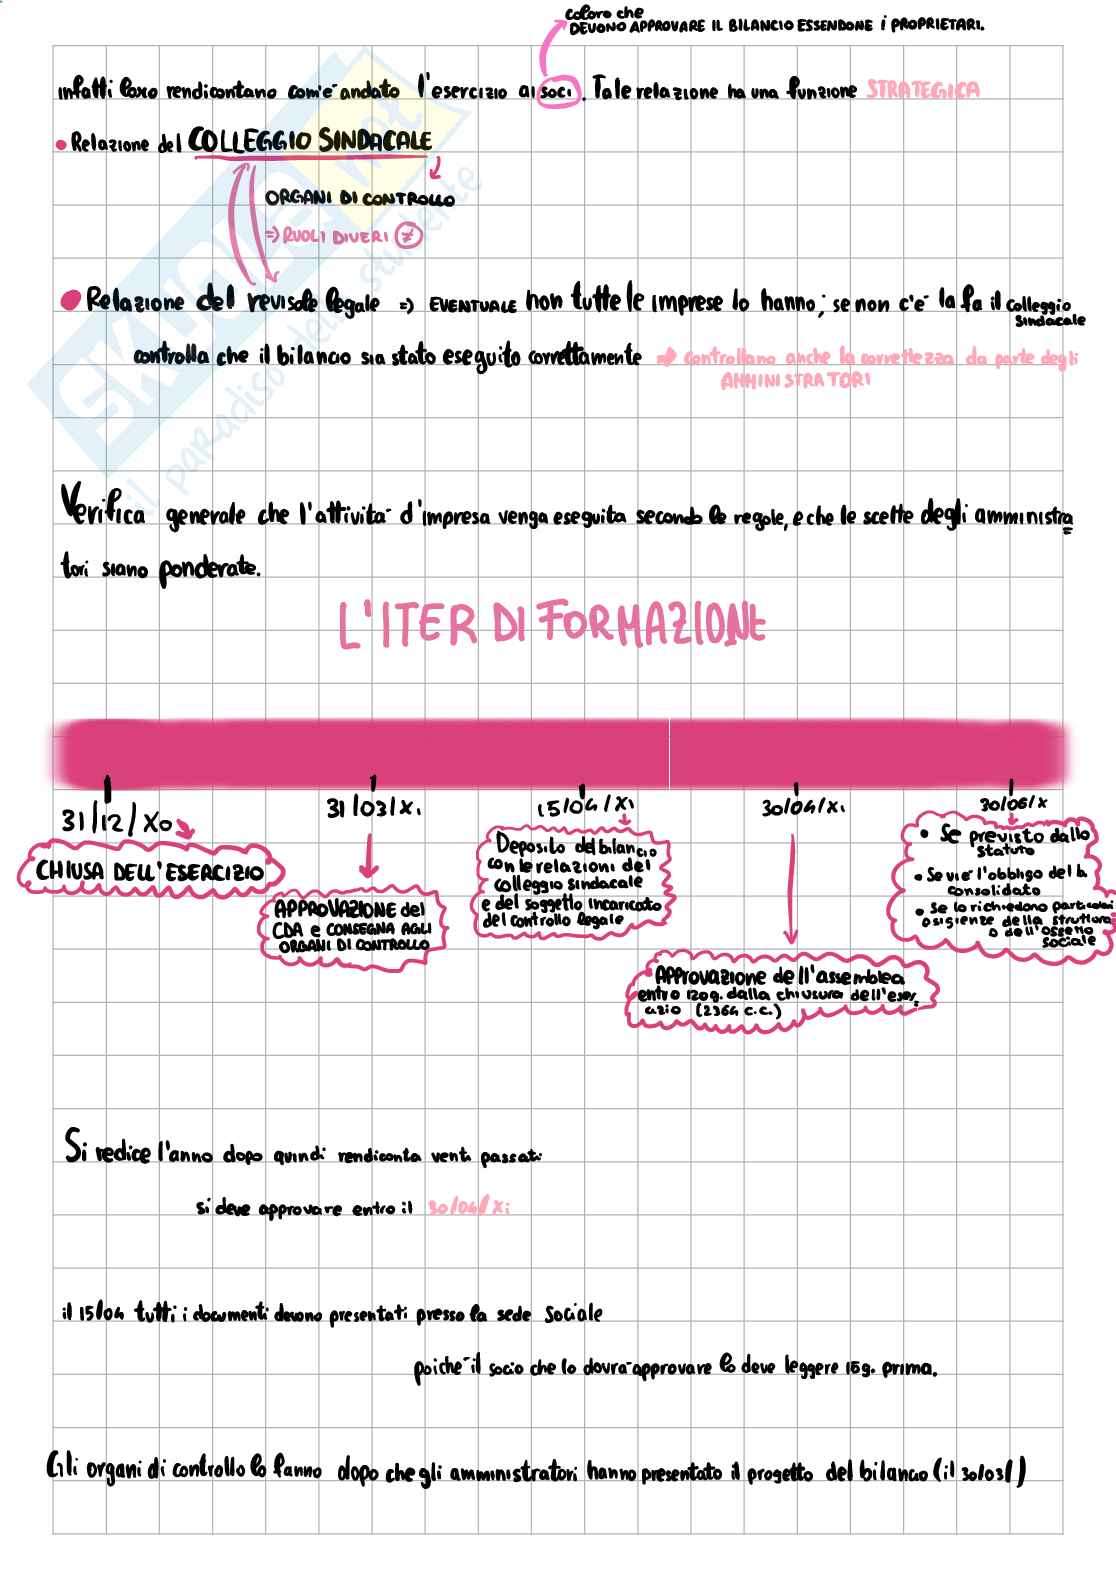 coloro che
DEVONO APPROVARE IL BILANCIO ESSENDONE i PROPRIETARI.
infatti loro rendicontano com'è andato l'esercizio ai soci. Tale relazione ha una funzione STRATEGICA
• Relazione del COLLEGGIO SINDACALE
ORGANI DI CONTROLLO
=> RUOLI DIVERI ≠
• Relazione del revisole legale => EVENTUALE non tutte le imprese lo hanno; se non c'è la fa il colleggio
sindacale
controlla che il bilancio sia stato eseguito correttamente => controllano anche la correttezza da parte degli
AMMINISTRATORI
Verifica generale che l'attività d'impresa venga eseguita secondo le regole, e che le scelte degli amministra
tori siano ponderate.
L'ITER DI FORMAZIONE
31/12/X0
31/03/X1
15/04/X1
30/04/X1
30/06/X
CHIUSA DELL'ESERCIZIO
APPROVAZIONE del
CDA e CONSEGNA AGLI
ORGANI DI CONTROLLO
Deposito del bilancio
con le relazioni del
colleggio sindacale
e del soggetto incaricato
del controllo legale
Approvazione dell'assemblea
entro 120g. dalla chiusura dell'eser
cizio (2364 c.c.)
• Se previsto dallo
statuto
• Se vi è l'obbligo del b.
consolidato
• Se lo richiedono particolari
esigienze della struttura
o dell'assetto
sociale
Si redice l'anno dopo quindi rendiconta venti passati
si deve approvare entro il 30/04/X1
il 15/04 tutti i documenti devono presentati presso la sede sociale
poichè il socio che lo dovrà approvare lo deve leggere 15g. prima.
Gli organi di controllo lo fanno dopo che gli amministratori hanno presentato il progetto del bilancio (il 30/03/)
SKUOLA.net
il paradiso dello studente